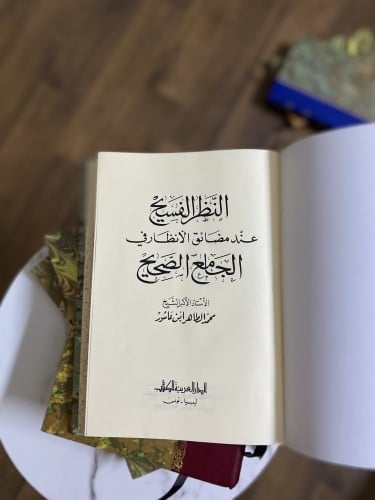 النظر الفسيح
عند مضائق الأنظار في
الجامع الصحيح
الأستاذ الأكبر الشيخ
محمد الطاهر ابن عاشور
الدار العربية للكتاب
ليبيا - تونس